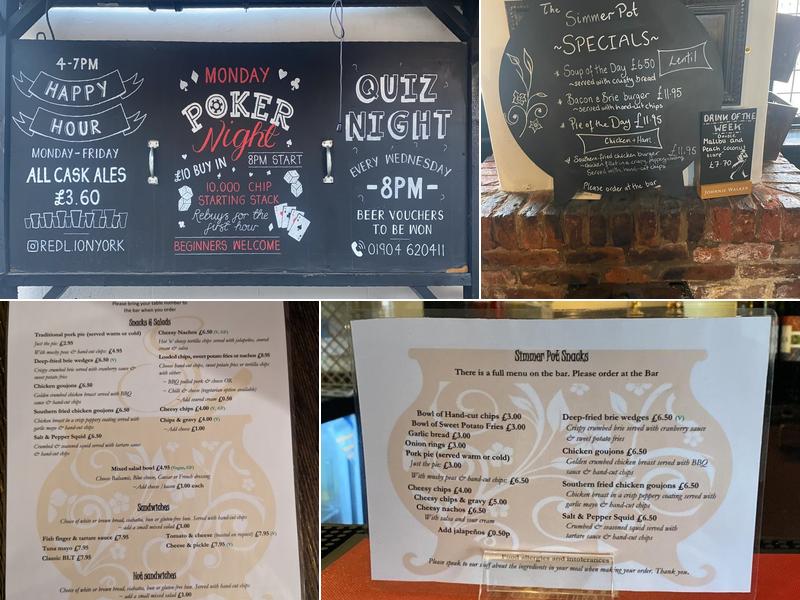 4-7PM
HAPPY
HOUR
MONDAY-FRIDAY
ALL CASK ALES
£3.60
REDLIONYORK
MONDAY
POKER
Night
£10 BUY IN
8PM START
10,000 CHIP
STARTING STACK
Rebuys for the
first hour
BEGINNERS WELCOME
QUIZ
NIGHT
EVERY WEDNESDAY
-8PM-
BEER VOUCHERS
TO BE WON
01904 620411
The
Simmer Pot
~SPECIALS~
* Soup of the Day £6.50
Lentil
~served with crusty bread
* Bacon & Brie burger £11.95
~served with hand-cut chips
* Pie of the Day £11.95
Chicken + Ham
* Southern-fried chicken burger £11.95
Served with hand-cut chips
Please order at the bar
DRINK OF THE
WEEK
Double
Malibu and
Peach coconut
£7.70
JOHNNIE WALKER
Please bring your table number to
the bar when you order
Snacks & Salads
Traditional pork pie (served warm or cold)
Just the pie: £2.95
With mushy peas & hand-cut chips: £4.95
Deep-fried brie wedges £6.50 (V)
Crispy crumbed brie served with cranberry sauce &
sweet potato fries
Chicken goujons £6.50
Golden crumbed chicken breast served with BBQ
sauce & hand-cut chips
Southern fried chicken goujons £6.50
Chicken breast in a crisp peppery coating served with
garlic mayo & hand-cut chips
Salt & Pepper Squid £6.50
Crumbed & seasoned squid served with tartare sauce
& hand-cut chips
Cheesy Nachos £6.50 (V, GF)
Hot 'n' cheesy tortilla chips served with jalapeños, soured
cream & salsa
Loaded chips, sweet potato fries or nachos £8.95
Choose hand-cut chips, sweet potato fries or tortilla chips
with either
~ BBQ pulled pork & cheese OR
~ Chilli & cheese (vegetarian option available)
~Add soured cream £0.50
Cheesy chips £4.00 (V, GF)
Chips & gravy £4.00 (V)
~Add cheese £1.00
Mixed salad bowl £4.95 (Vegan, GF)
Choose Balsamic, Blue cheese, Caesar or French dressing
~Add cheese / bacon £3.00 each
Sandwiches
Choice of white or brown bread, ciabatta, bun or gluten-free bun. Served with hand-cut chips
~ add a small mixed salad £3.00
Fish finger & tartare sauce £7.95
Tuna mayo £7.95
Classic BLT £7.95
Tomato & cheese (toasted on request) £7.95 (V)
Cheese & pickle £7.95 (V)
Hot sandwiches
Choice of white or brown bread, ciabatta, bun or gluten-free bun. Served with hand-cut chips
~ add a small mixed salad £3.00
Simmer Pot Snacks
There is a full menu on the bar. Please order at the Bar
Bowl of Hand-cut chips £3.00
Bowl of Sweet Potato Fries £3.00
Garlic bread £3.00
Onion rings £3.00
Pork pie (served warm or cold)
Just the pie: £3.00
With mushy peas & hand-cut chips: £6.50
Cheesy chips £4.00
Cheesy chips & gravy £5.00
Cheesy nachos £6.50
With salsa and sour cream
Add jalapeños £0.50p
Deep-fried brie wedges £6.50 (V)
Crispy crumbed brie served with cranberry sauce
& sweet potato fries
Chicken goujons £6.50
Golden crumbed chicken breast served with BBQ
sauce & hand-cut chips
Southern fried chicken goujons £6.50
Chicken breast in a crisp peppery coating served with
garlic mayo & hand-cut chips
Salt & Pepper Squid £6.50
Crumbed & seasoned squid served with
tartare sauce & hand-cut chips
Food allergies and intolerances
Please speak to our staff about the ingredients in your meal when making your order. Thank you.